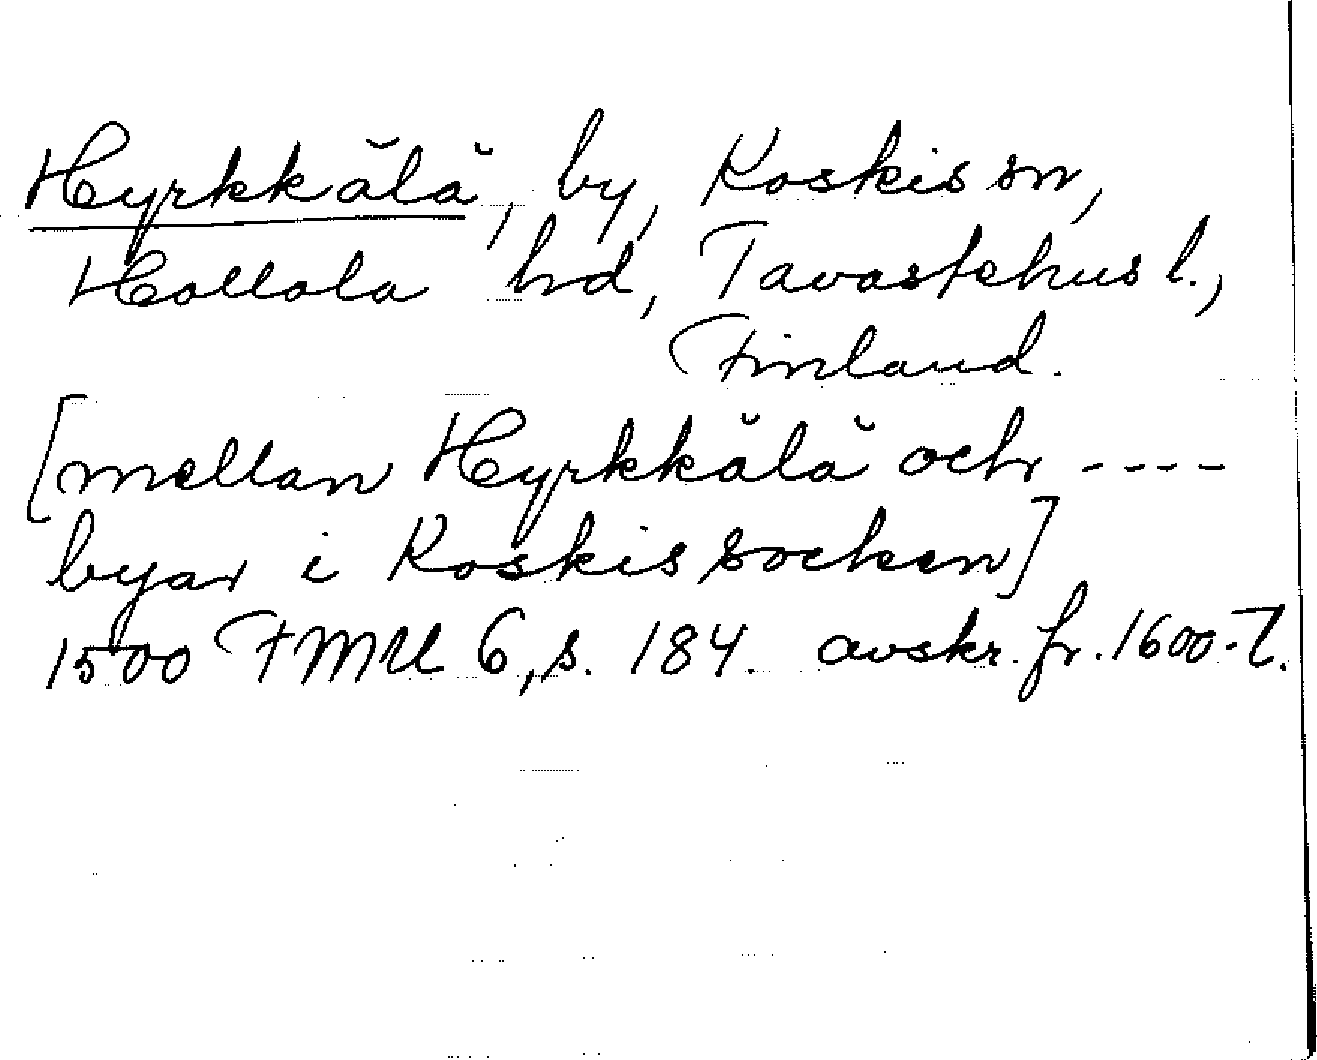 Hyrkkälä, by, Koskis sn,
Hollola hd, Tavastehus l.,
Finland.
[mellan Hyrkkälä och ----
byar i Koskis socken]
1500 FMU 6, s. 184. avskr. fr. 1600-t.